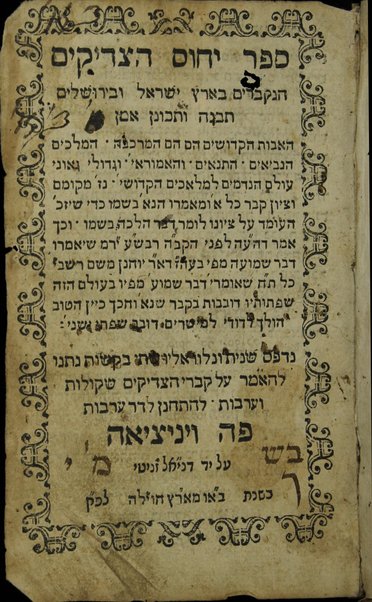 ספר יחוס הצדיקים
הנקברים בארץ ישראל ובירושלים
תבנה ותכונן אמן
האבות הקדושים הם הם המרכבה המלכים
הנביאים התנאים והאמוראי׳ וגדולי גאוני
עולם הנדמים למלאכים הקדושי׳ מקומם
וציון קבר כל א׳ ומאמרו הנא בשמו כדי שיזכ׳
העומד על ציונו לומר דבר הלכה בשמו וכך
אמר דה״עה לפני הקב״ה רבש״ע שיאמרו
דבר שמועה מפי בעה״ז דאר׳ יוחנן משם רשב״י
כל ת״ח שאומרי׳ דבר שמוע׳ מפיו בעולם הזה
שפתותיו דובבות בקבר שנא׳ וחכך כיין הטוב
הולך לדודי למישרים דובב שפתי ישני׳׃
נדפס שנית ונלוו אליו בקשות נתנו
להאמר על קברי הצדיקים שקולות
וערבות להתחנן לדר ערבות
פה ויניציאה
על יד דניאל זניטי
בשנת באו מארץ לפ״ק